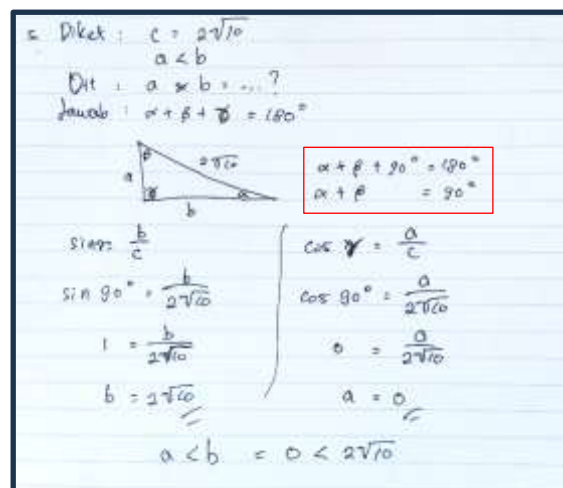 5. Diket : c = 2√10
a < b
Dit : a & b = ...?
Jawab : α + β + γ = 180°
β
2√10
a
γ
α
b
α + β + 90° = 180°
α + β = 90°
sin γ = b/c
sin 90° = b/2√10
1 = b/2√10
b = 2√10
cos γ = a/c
cos 90° = a/2√10
0 = a/2√10
a = 0
a < b = 0 < 2√10